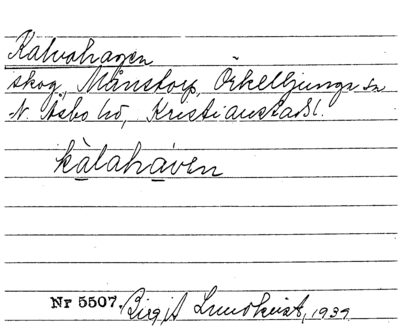 Kalvahagen
skog, Månstorp, Örkelljunga sn
N. Åsbo hd, Kristianstads l.
kàlahàven
Nr 5507. Birgit Lundkvist, 1939